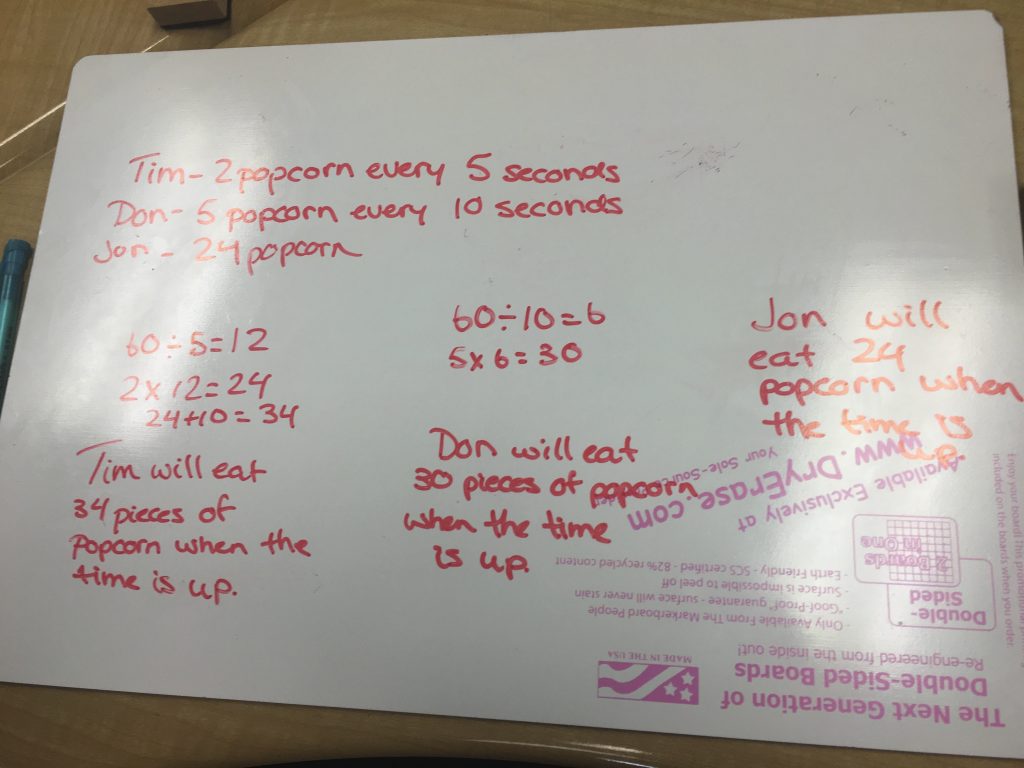 Tim - 2 popcorn every 5 seconds
Don - 5 popcorn every 10 seconds
Jon - 24 popcorn
60÷5=12
2x12=24
24+10=34
Tim will eat
34 pieces of
popcorn when the
time is up.
60÷10=6
5x6=30
Don will eat
30 pieces of popcorn
when the time
is up.
Jon will
eat 24
popcorn when
the time is
up.
The Next Generation of
Double-Sided Boards
Re-engineered from the inside out!
MADE IN THE USA
Double-
Sided
2 Boards
in One
- Only Available From The Markerboard People
- "Goof-Proof" guarantee - surface will never stain
- Surface is impossible to peel off
- Earth Friendly - SCS certified - 82% recycled content
Available Exclusively at
www.DryErase.com
Your Sole-Source